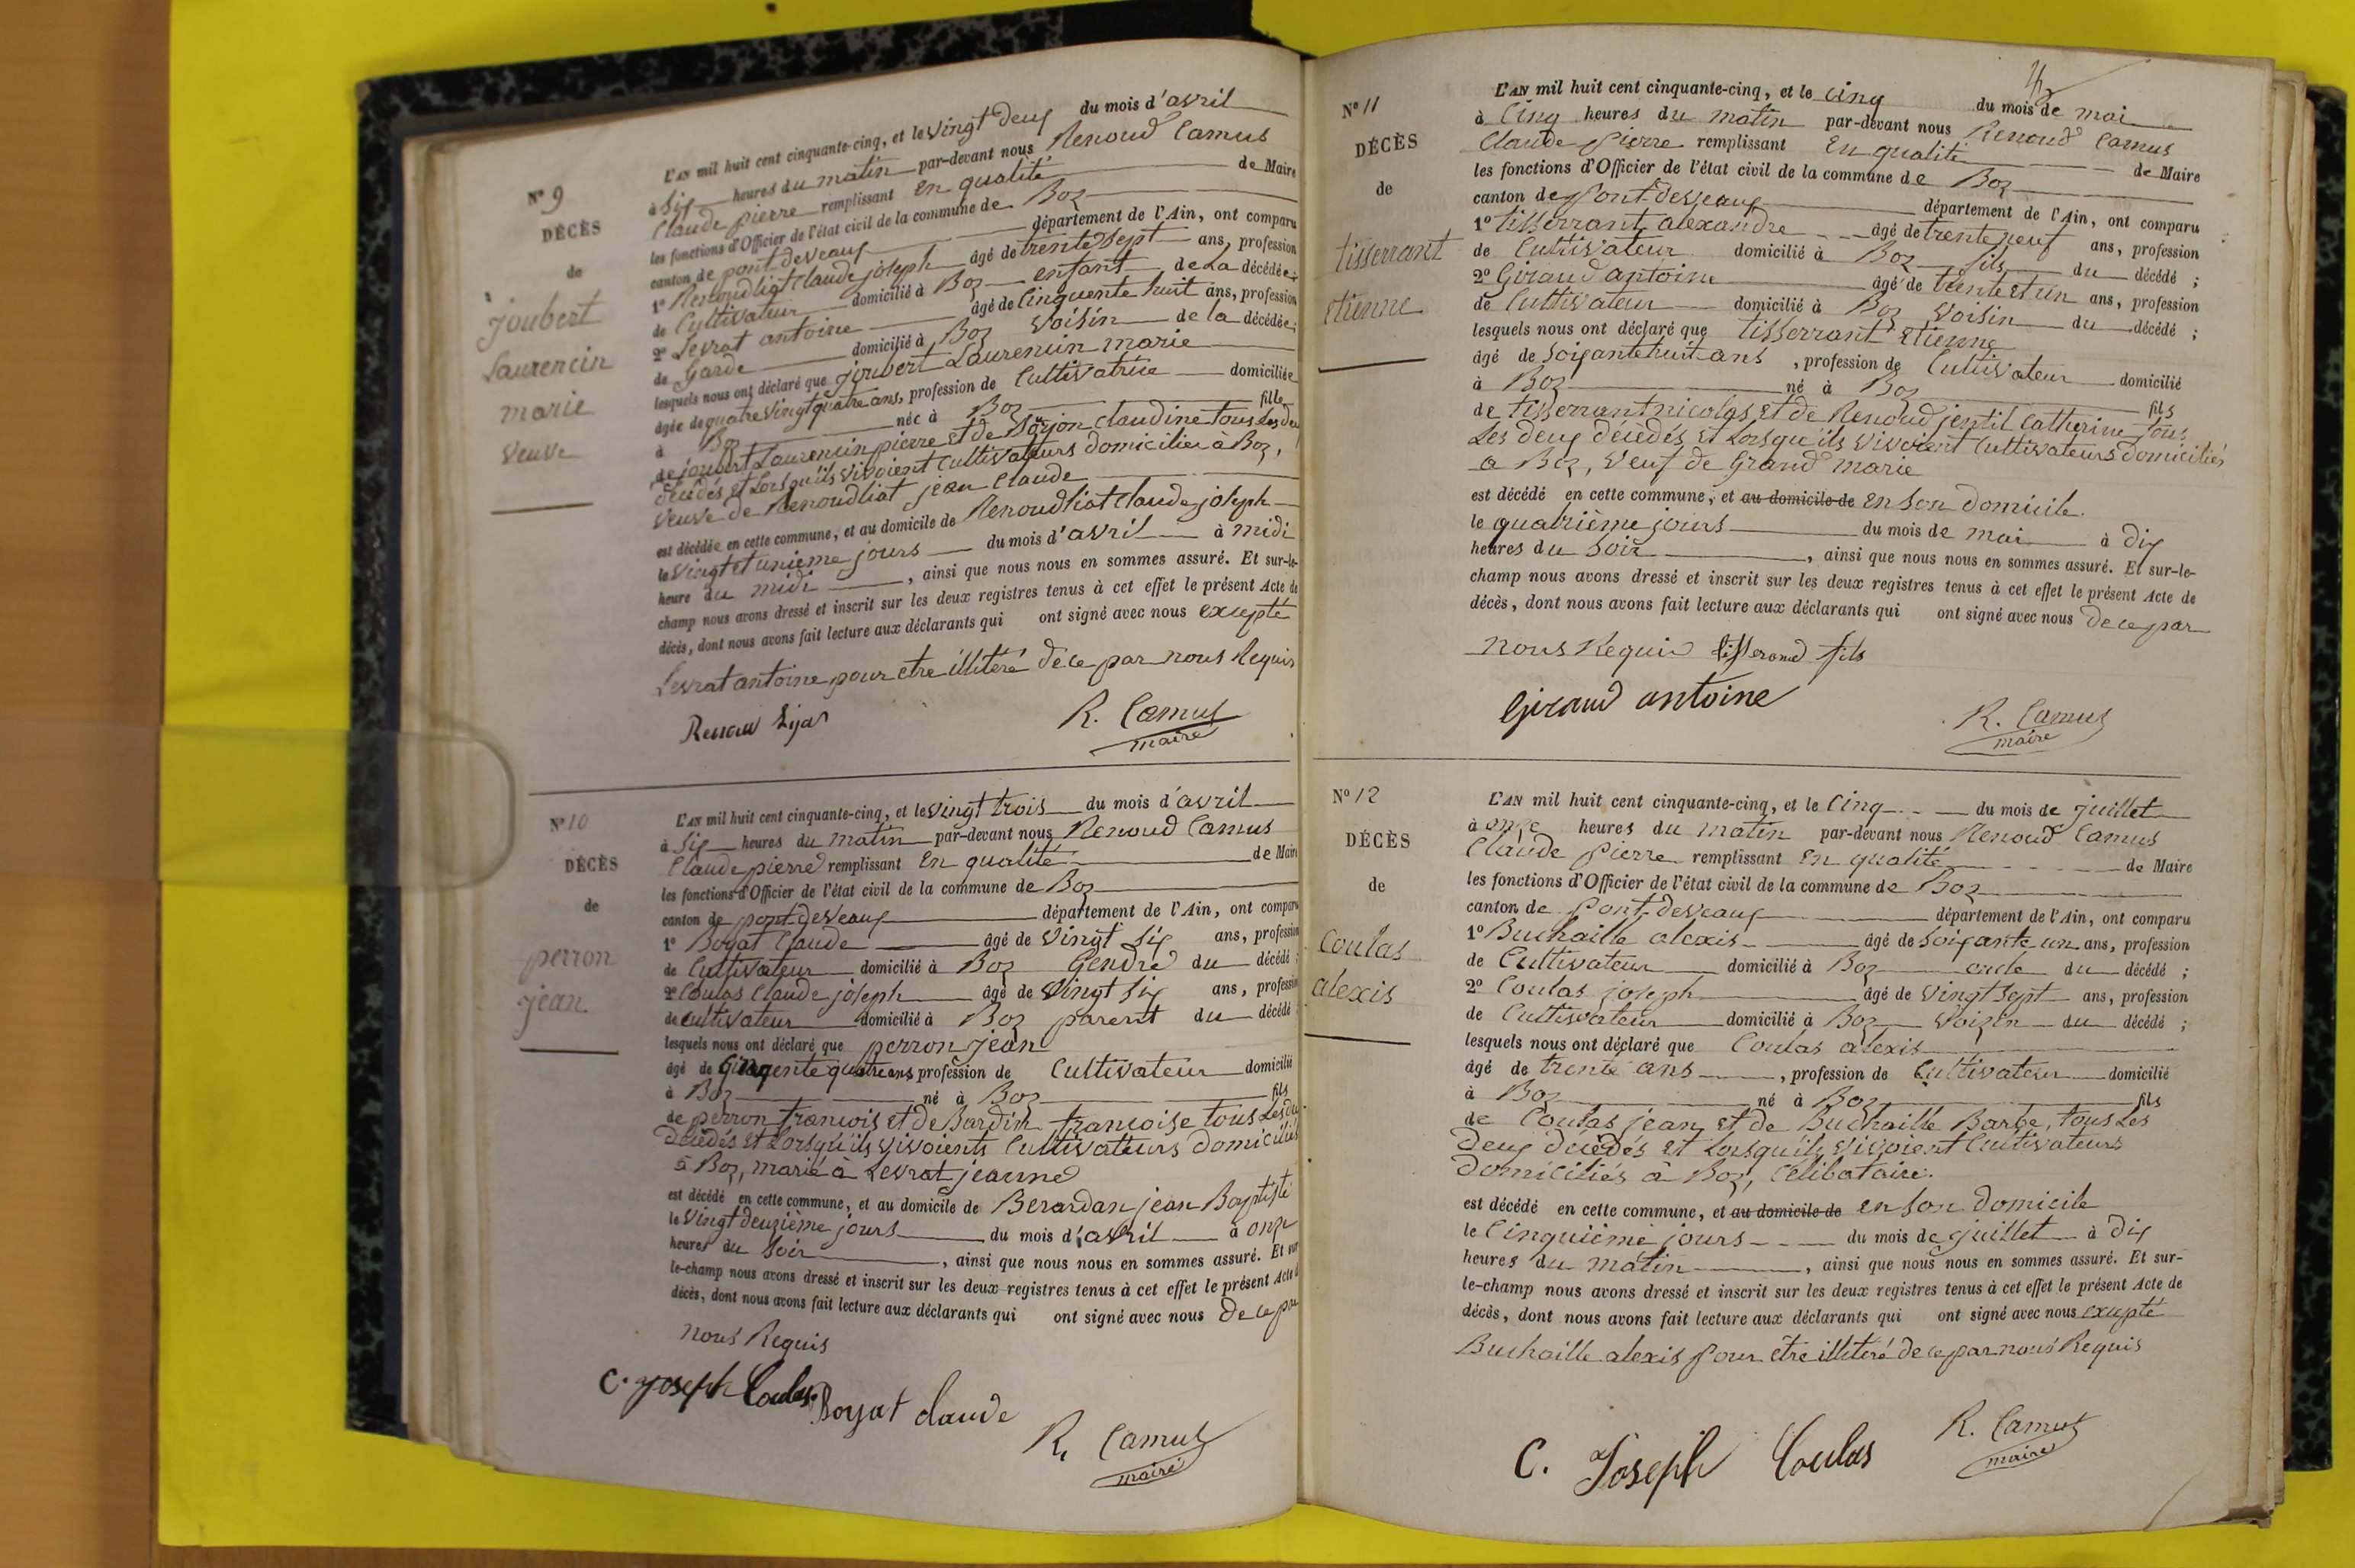 N° 9
DÉCÈS
de
joubert
Laurencin
marie
veuve
L'AN mil huit cent cinquante-cinq, et le vingt deux du mois d'avril
à Six heures du matin par-devant nous Renoud Camus
Claude pierre remplissant En qualité de Maire
les fonctions d'Officier de l'état civil de la commune de Boz
canton de pont-deveaux département de l'Ain, ont comparu
1° Renoudliat Claude joseph âgé de trente sept ans, profession
de Cultivateur domicilié à Boz enfant de La décédée;
2° Levrat antoine âgé de Cinquente huit ans, profession
de Garde domicilié à Boz Voisin de la décédée;
lesquels nous ont déclaré que joubert Laurencin marie
âgée de quatre vingt quatre ans, profession de Cultivatrice domiciliée
à Boz née à Boz fille
de joubert Laurencin pierre et de claudine tous Les deu
décédés et Lorsqu'ils vivoient Cultivateurs domicilier à Boz,
veuve de Renoudliat jean Claude
est décédée en cette commune, et au domicile de Renoudliat Claude joseph
le vingt et unieme jours du mois d'avril à midi
heure du midi , ainsi que nous nous en sommes assuré. Et sur-le-
champ nous avons dressé et inscrit sur les deux registres tenus à cet effet le présent Acte de
décès, dont nous avons fait lecture aux déclarants qui ont signé avec nous exepté
Levrat antoine pour etre illiteré de ce par nous Requis
Renoud Lija
R. Camus
maire
N° 10
DÉCÈS
de
perron
jean
L'AN mil huit cent cinquante-cinq, et le vingt trois du mois d'avril
à Six heures du matin par-devant nous Renoud Camus
Claude pierre remplissant En qualité de Maire
les fonctions d'Officier de l'état civil de la commune de Boz
canton de pont-deveaux département de l'Ain, ont comparu
1° Boyat Claude âgé de vingt Six ans, profession
de Cultivateur domicilié à Boz Gendre du décédé;
2° Coulas Claude joseph âgé de vingt Six ans, profession
de cultivateur domicilié à Boz parent du décédé
lesquels nous ont déclaré que perron jean
âgé de quatre ans profession de Cultivateur domicilié
à Boz né à Boz fils
de perron francois et de Bardin francoise tous Les deu
décédés et Lorsqu'ils vivoients Cultivateurs domiciliés
à Boz, marié à Levrat jeanne
est décédé en cette commune, et au domicile de Berardan jean Baptiste
le vingt deuzième jours du mois d'avril à onze
heures du Soir , ainsi que nous nous en sommes assuré. Et sur
le-champ nous avons dressé et inscrit sur les deux registres tenus à cet effet le présent Acte d
décès, dont nous avons fait lecture aux déclarants qui ont signé avec nous de ce par
nous Requis
C. joseph Coulas Boyat claude
R. Camus
maire
N° 11
DÉCÈS
de
tisserrant
Etienne
L'AN mil huit cent cinquante-cinq, et le cinq du mois de mai
à Cinq heures du matin par-devant nous Renoud Camus
Claude pierre remplissant En qualité de Maire
les fonctions d'Officier de l'état civil de la commune de Boz
canton de Pont-deveaux département de l'Ain, ont comparu
1° tisserrant alexandre âgé de trente neuf ans, profession
de Cultivateur domicilié à Boz fils du décédé;
2° Giraud antoine âgé de trente et un ans, profession
de Cultivateur domicilié à Boz Voisin du décédé;
lesquels nous ont déclaré que tisserrant Etienne
âgé de soixante huit ans , profession de Cultivateur domicilié
à Boz né à Boz fils
de tisserrant nicolas et de Renoud jentil Catherine tous
Les deux décédés et Lorsqu'ils vivoient Cultivateurs domiciliés
a Boz, veuf de Grand marie
est décédé en cette commune, et au domicile de en Son domicile.
le quatrième jours du mois de mai à dix
heures du Soir , ainsi que nous nous en sommes assuré. Et sur-le-
champ nous avons dressé et inscrit sur les deux registres tenus à cet effet le présent Acte de
décès, dont nous avons fait lecture aux déclarants qui ont signé avec nous de ce par
nous Requis tisserand fils
Giraud antoine
R. Camus
maire
N° 12
DÉCÈS
de
Coulas
alexis
L'AN mil huit cent cinquante-cinq, et le Cinq du mois de juillet
à onze heures du matin par-devant nous Renoud Camus
Claude Pierre remplissant En qualité de Maire
les fonctions d'Officier de l'état civil de la commune de Boz
canton de Pont-deveaux département de l'Ain, ont comparu
1° Buchaille alexis âgé de soixante un ans, profession
de Cultivateur domicilié à Boz oncle du décédé;
2° Coulas joseph âgé de vingt sept ans, profession
de Cultivateur domicilié à Boz Voizin du décédé;
lesquels nous ont déclaré que Coulas alexis
âgé de trente ans , profession de Cultivateur domicilié
à Boz né à Boz fils
de Coulas jean et de Buchaille Barbe, tous Les
deux décédés et Lorsqu'ils vivoient Cultivateurs
domiciliés à Boz, Célibataire.
est décédé en cette commune, et au domicile de en Son domicile
le Cinquième jours du mois de juillet à dix
heures du matin , ainsi que nous nous en sommes assuré. Et sur-
le-champ nous avons dressé et inscrit sur les deux registres tenus à cet effet le présent Acte de
décès, dont nous avons fait lecture aux déclarants qui ont signé avec nous exepté
Buchaille alexis pour être illiteré de ce par nous Requis
C. Joseph Coulas
R. Camus
maire